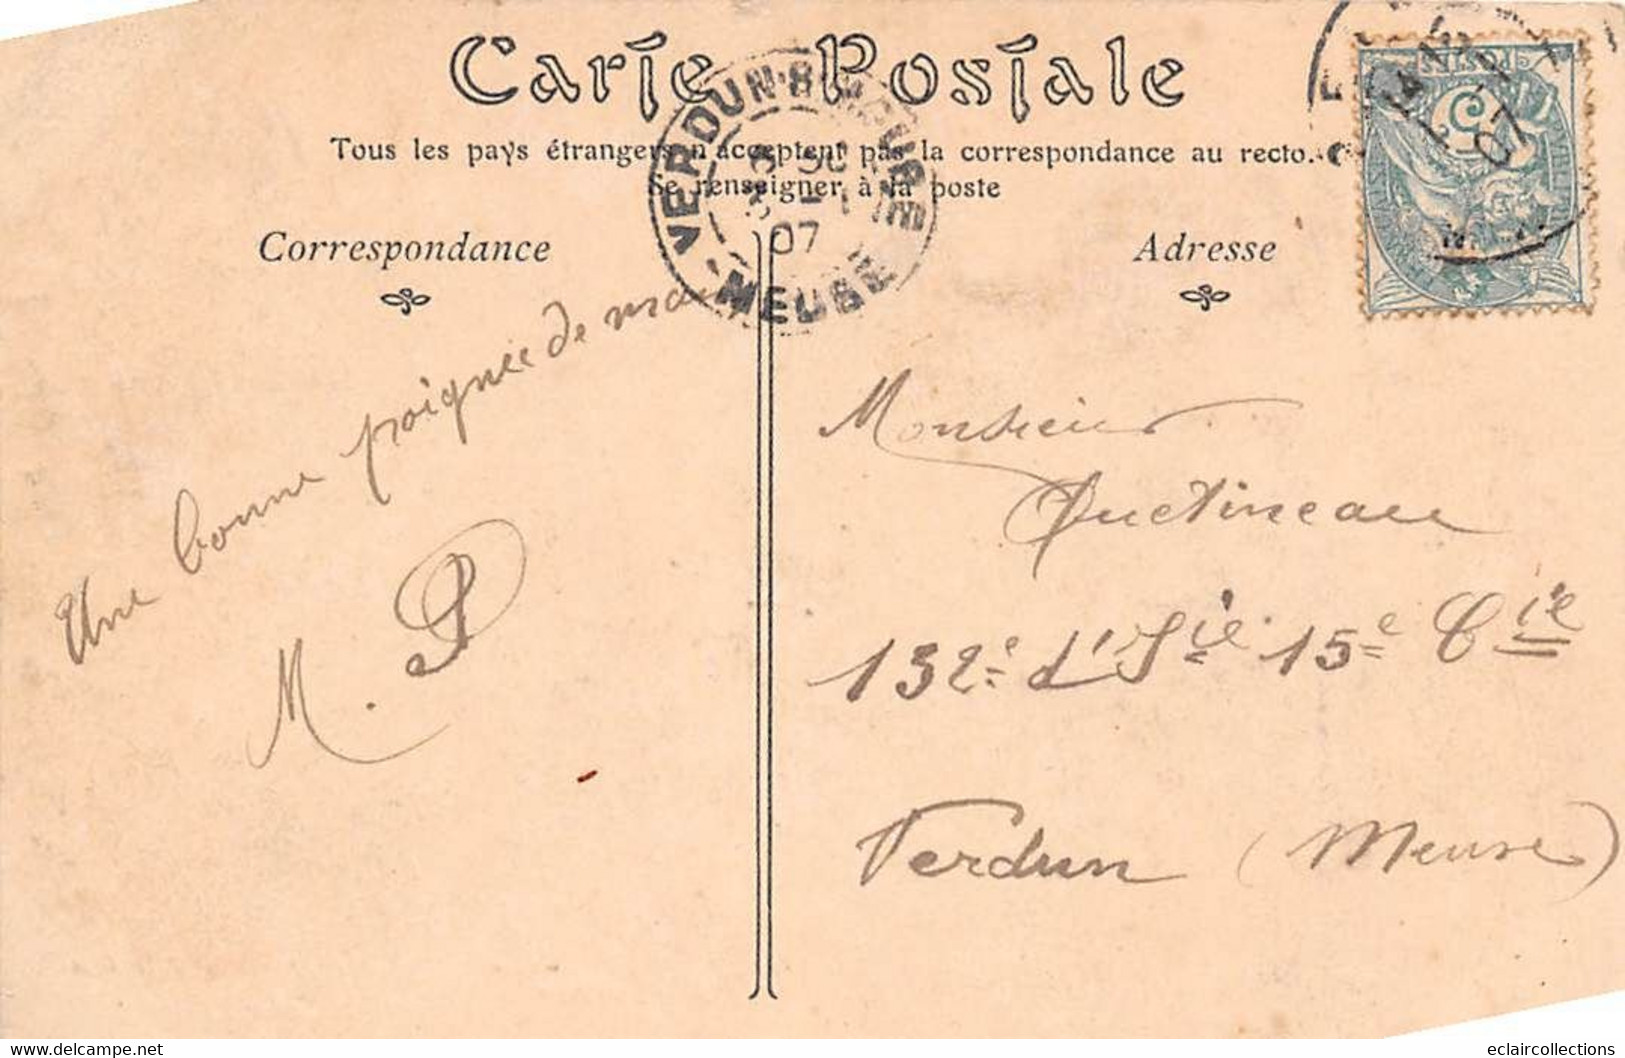 Carte Postale
Tous les pays étrangers n'acceptent pas la correspondance au recto.
Se renseigner à la poste
Correspondance
Adresse
VERDUN-S
MEUSE
07
POSTES
5
07
Une bonne poignée de main
M. P
Monsieur
Quetineau
132e d'Ie 15e Cie
Verdun (Meuse)
eclaircollections